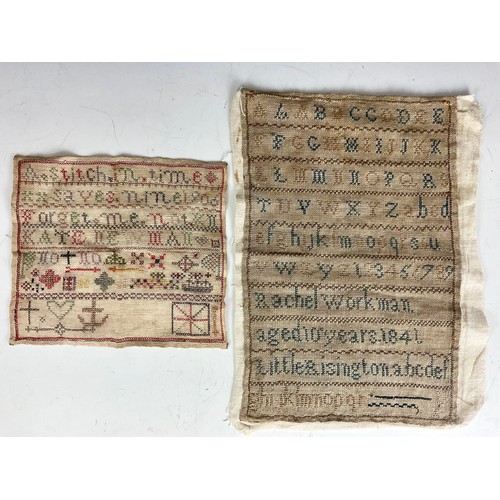 A stitch in time
saves nine 190
Forget me not
KATE MAN
A A B C C D E
F G G H H I J K
L M M N O P Q R
T U V W X Y Z a b d
e f g h j k m n o q s u
w y 2 1 3 4 5 6 7 8 9
Rachel Workman
aged 10 years. 1841
Little Risington a b c d e f
g h i j k l m n o p q r